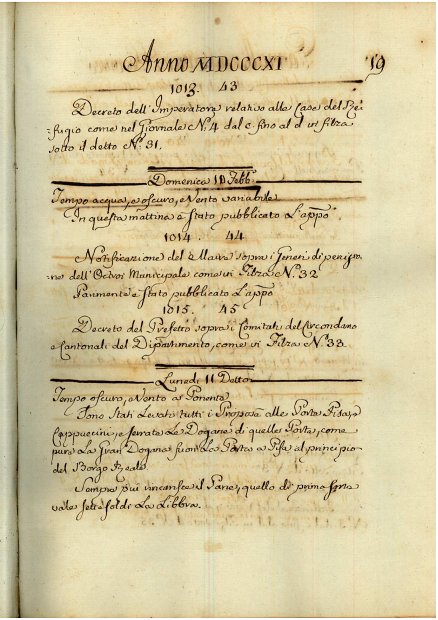 Anno MDCCCXI 19
1013. 43
Decreto dell'Imperatore relativo alle Case del Re=
=fugio come nel Giornale N. 4 dal c fino al d in filza
sotto il detto N.° 31.
Domenica 10 Febb.
Tempo acqua, e oscuro, e Vento variabile
In questa mattina è Stato pubblicato L'app.o
1014. 44
Notificazione del Maire sopra i Generi di
ne dell'Octroi Municipale come in Filza N.° 32
Parimente è Stato pubblicato L'app.o
1015. 45
Decreto del Prefetto sopra i Comitati del Circondario
e Cantonali del Dipartimento, come in Filza N.° 33.
Lunedi 11 Detto
Tempo oscuro, e Vento a Ponente
Sono Stati Levati tutti i Proposti alle Porte Pisa, e
Cappuccini, e Serrate Le Dogane di quelle Porte, come
pure La Gran Dogana fuori La Porta a Pisa al principio
del Borgo Reale.
Sempre più rincarisce il Pane, quello di prima sorta
vale sei Soldi La Libbra.